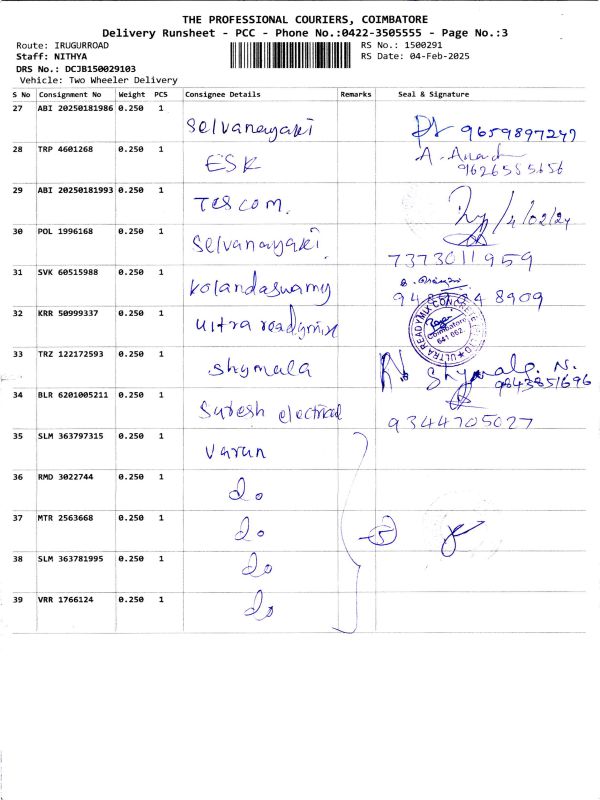 THE PROFESSIONAL COURIERS, COIMBATORE
Delivery Runsheet - PCC - Phone No.:0422-3505555 - Page No.:3
Route: IRUGURROAD RS No.: 1500291
Staff: NITHYA RS Date: 04-Feb-2025
DRS No.: DCJB150029103
Vehicle: Two Wheeler Delivery
S No Consignment No Weight PCS Consignee Details Remarks Seal & Signature
27 ABI 20250181986 0.250 1 Selvanayaki 9659897247
28 TRP 4601268 0.250 1 ESK A. Anand
9626555656
29 ABI 20250181993 0.250 1 Tescom. 4/02/24
30 POL 1996168 0.250 1 Selvanayaki
7373011959
31 SVK 60515988 0.250 1 Kolandaswamy 8909
32 KRR 50999337 0.250 1 Ultra readymix ULTRA READYMIX CONCRETE Coimbatore 641 062.
33 TRZ 122172593 0.250 1 Shymala Shymala. N.
9843851696
34 BLR 6201005211 0.250 1 Suresh electrical
9344705027
35 SLM 363797315 0.250 1 Varun
36 RMD 3022744 0.250 1 do
37 MTR 2563668 0.250 1 do 5
38 SLM 363781995 0.250 1 do
39 VRR 1766124 0.250 1 do